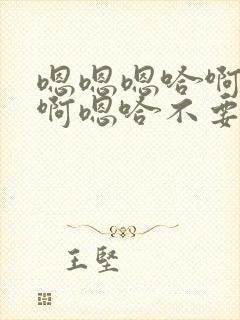 嗯嗯嗯哈啊
啊嗯哈不要
王坚